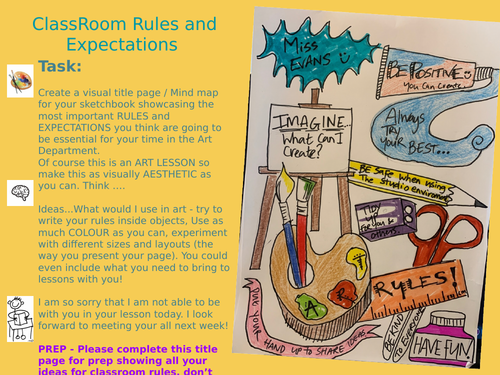 ClassRoom Rules and
Expectations
Task:
Create a visual title page / Mind map
for your sketchbook showcasing the
most important RULES and
EXPECTATIONS you think are going to
be essential for your time in the Art
Department.
Of course this is an ART LESSON so
make this as visually AESTHETIC as
you can. Think ....
Ideas...What would I use in art - try to
write your rules inside objects, Use as
much COLOUR as you can, experiment
with different sizes and layouts (the
way you present your page). You could
even include what you need to bring to
lessons with you!
I am so sorry that I am not able to be
with you in your lesson today. I look
forward to meeting your all next week!
PREP - Please complete this title
page for prep showing all your
ideas for classroom rules, don't
Miss
EVANS
BE POSITIVE
you can create.
IMAGINE.
What can I
Create?
Always
TRY
YOUR BEST...
Be Safe when using
The studio environment
others.
A R T
RULES!
PUT YOUR
HAND UP to SHARE IDEAS
BE KIND
To Everyone
HAVE FUN.